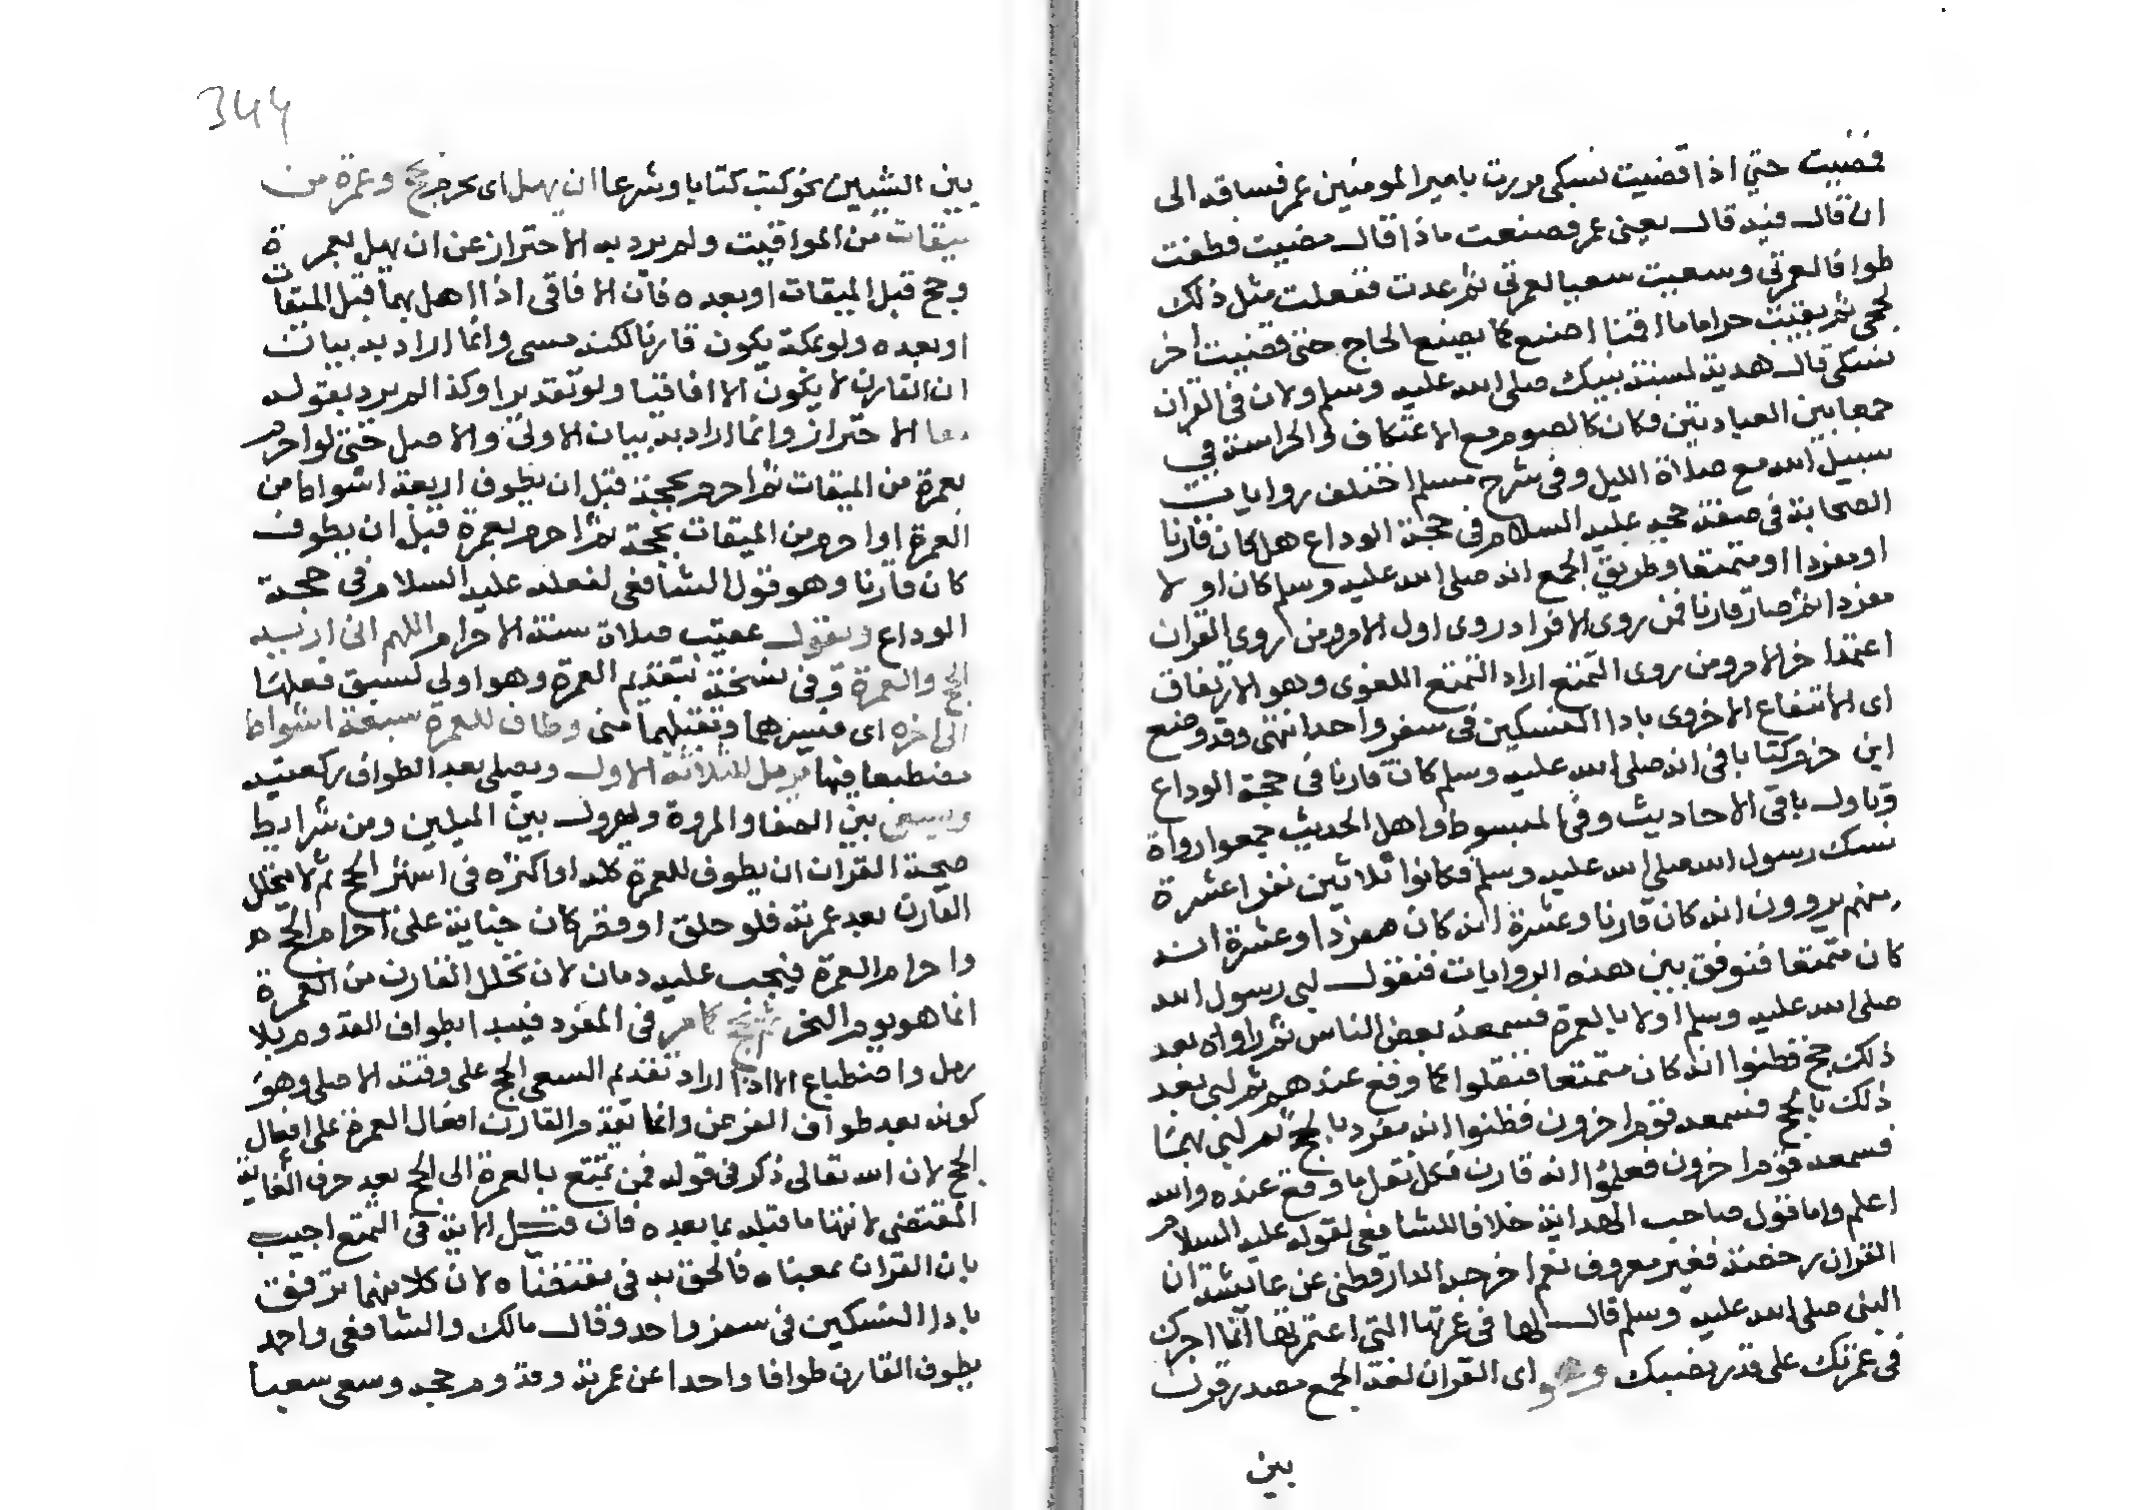 فضيت حتي اذا قضيت نسكي مررت بامير المومنين عمر فساقه الى
ان قال فيه قال يعنى عمر فصنعت ماذا قال مضيت فطفت
طوافا لعمرتى وسعيت سعيا لعمرتى ثم عدت ففعلت مثل ذلك
لحجى ثم بقيت حراما ما اقمنا اصنع كما يصنع الحاج حتى قضيت اخر
نسكى قال هديت لسنة نبيك صلى الله عليه وسلم ولان فى القران
جمعا بين العبادتين فكان كالصوم مع الاعتكاف والحراسة في
سبيل الله مع صلاة الليل وفى شرح مسلم اختلف روايات
الصحابة فى صفة حجه عليه السلام فى حجة الوداع هل كان قارنا
او مفردا او متمتعا وطريق الجمع انه صلى الله عليه وسلم كان اولا
مفردا ثم صار قارنا فمن روى الافراد روى اول الامر ومن روى القران
اعتمد اخر الامر ومن روى التمتع اراد التمتع اللغوى وهو الارتفاق
اى الانتفاع الاخروى بادا النسكين فى سفر واحد انتهى وقد وضع
ابن حزم كتابا فى انه صلى الله عليه وسلم كان قارنا فى حجة الوداع
وتاول باقى الاحاديث وفى المبسوط واهل الحديث جمعوا رواة
نسك رسول الله صلى الله عليه وسلم فكانوا ثلاثين نفرا عشرة
منهم يروون انه كان قارنا وعشرة انه كان مفردا وعشرة انه
كان متمتعا فنوفق بين هذه الروايات فنقول لبى رسول الله
صلى الله عليه وسلم اولا بالعمرة فسمعه بعض الناس ثم راواه بعد
ذلك حج فظنوا انه كان متمتعا فنقلوا كما وقع عندهم ثم لبى بعد
ذلك بالحج فسمعه قوم اخرون فظنوا انه مفرد بالحج ثم لبى بهما
فسمعه قوم اخرون فعلموا انه قارن فكل نقل ما وقع عنده والله
اعلم واما قول صاحب الهداية خلافا للشافعى لقوله عليه السلام
القران رخصة فغير معروف نعم اخرجه الدارقطنى عن عايشة ان
النبى صلى الله عليه وسلم قال لها فى عمرتها التى اعتمرتها انما اجرك
فى عمرتك على قدر نصبك وهو اى القران لغة الجمع مصدر قرنت
بين
344
بين الشيين نحو كتبت كتابا وشرعا ان يهل اى يحرم بحج وعمرة من
ميقات من المواقيت ولم يرد به الاحتراز عن ان يهل بعمرة
وحج قبل الميقات او بعده فان الافاقى اذا اهل بهما قبل الميقات
او بعده ولو بمكة يكون قارنا لكنه مسى وانما اراد به بيان
ان القارن لا يكون الا افاقيا ولو تقديرا وكذا لم يرد بقوله
معا الاحتراز وانما اراد به بيان الاولى والاصل حتى لو احرم
بعمرة من الميقات ثم احرم بحجة قبل ان يطوف اربعة اشواط من
العمرة او احرم من الميقات بحجة ثم احرم بعمرة قبل ان يطوف
كان قارنا وهو قول الشافعى لفعله عليه السلام فى حجة
الوداع ويقول عقيب صلاة سنة الاحرام اللهم انى اريد
الحج والعمرة وفى نسخة بتقديم العمرة وهو اولى لسبق فعلها
الى اخره اى فيسرهما وتقبلهما منى وطاف للعمرة سبعة اشواط
مضطبعا فيها يرمل للثلاثة الاول ويصلى بعد الطواف ركعتيه
ويسعى بين الصفا والمروة ويهرول بين الميلين ومن شرايط
صحة القران ان يطوف للعمرة كله او اكثره فى اشهر الحج ثم لا يتحلل
القارن بعد عمرته فلو حلق او قصر كان جناية على احرام الحج
واحرام العمرة فيجب عليه دمان لان تحلل القارن من العمرة
انما هو يوم النحر ثم يحج كما مر فى المفرد فيبدا بطواف القدوم بلا
رمل واضطباع الا اذا اراد تقديم السعى الحج على وقته الاصلى وهو
كونه بعد طواف الفرض وانما تقدم القارن افعال العمرة على افعال
الحج لان الله تعالى ذكر فى قوله فمن تمتع بالعمرة الى الحج بعد حرف الغاية
المقتضى لانتها ما قبله بما بعده فان قيل الاية فى التمتع اجيب
بان القران بمعناه فالحق به فى مقتضاه لان كلا منهما ترفق
بادا النسكين فى سفر واحد وقال مالك والشافعى واحمد
يطوف القارن طوافا واحدا عن عمرته وقدوم حجه وسعى سعيا